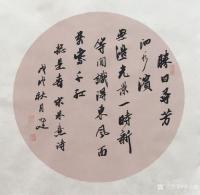 勝日尋芳
泗水濱
無邊光景一時新
等閒識得東風面
萬紫千紅
總是春 宋朱熹詩
戊戌秋月